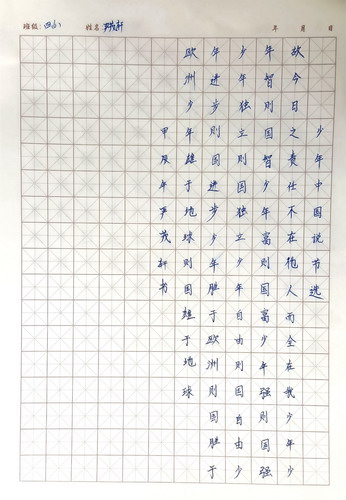 班级：四(1) 姓名 尹茂轩 年 月 日
少年中国说节选
故今日之责任不在他人而全在我少年少
年智则国智少年富则国富少年强则国强
少年独立则国独立少年自由则国自由少
年进步则国进步少年胜于欧洲则国胜于
欧洲少年雄于地球则国雄于地球
甲辰年尹茂轩书